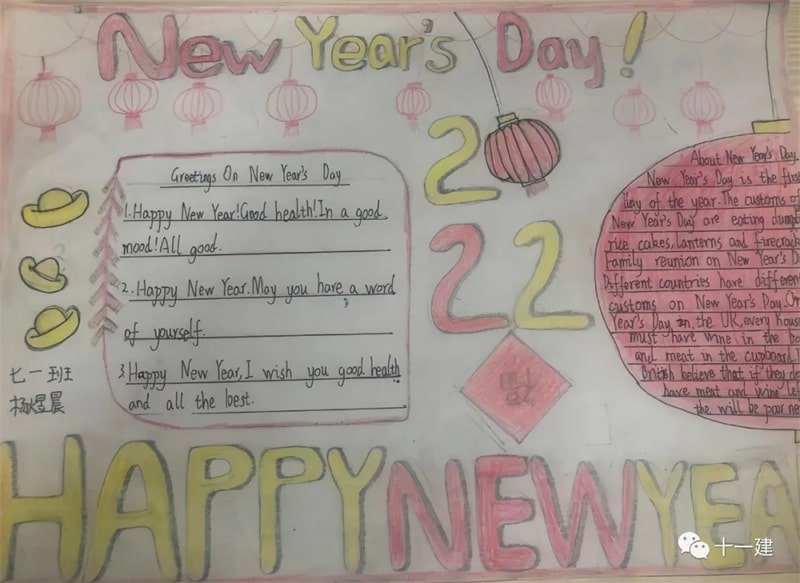 New Year's Day!
Greetings On New Year's Day
1.Happy New Year!Good health!In a good
mood!All good.
2.Happy New Year.May you have a word
of yourself.
3.Happy New Year,I wish you good health
and all the best.
七一班
杨煜晨
2
22
About New Year's Day
New Year's Day is the first
day of the year.The customs of
New Year's Day are eating
rice cakes,lanterns and
Family reunion on New Year's
Different countries have
customs on New Year's Day.On
Year's Day in the UK,every
must have wine in the
and meat in the cupboard.
British believe that if they
have meat and wine
the will be poor
HAPPY NEW YEA
十一建